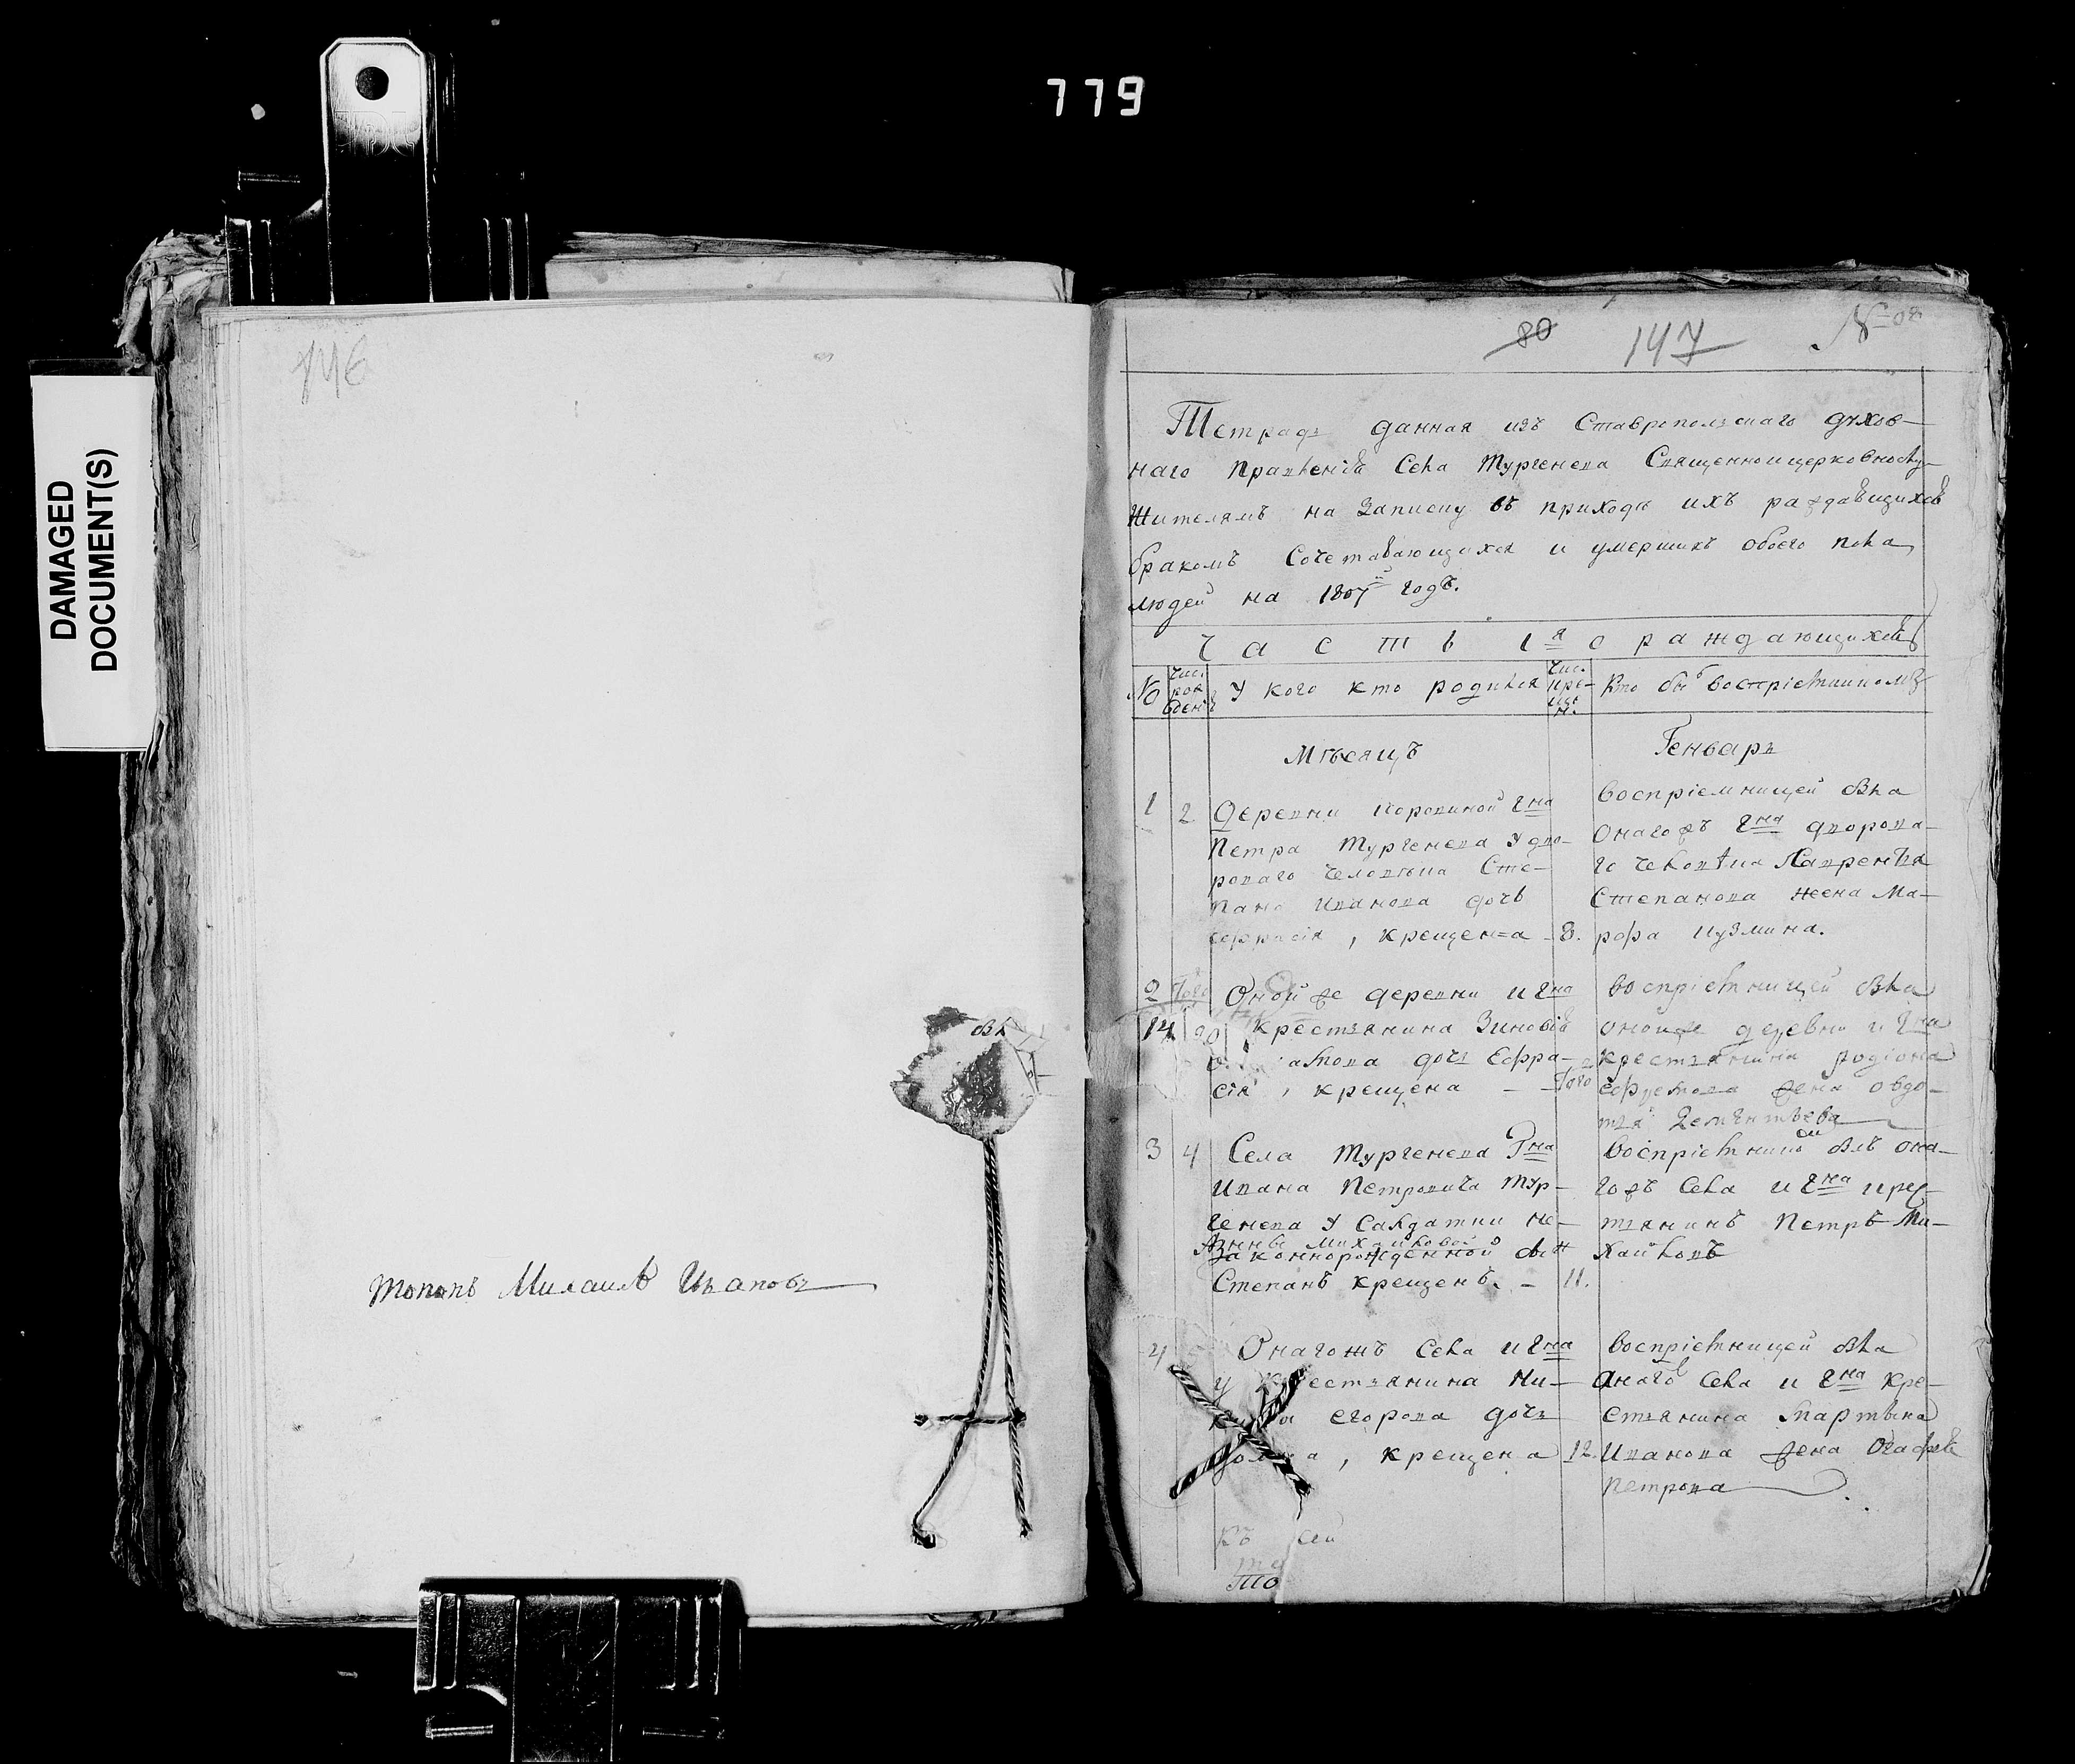 779
DAMAGED
DOCUMENT(S)
146
Попъ Михаилъ Ивановъ
80 147 №
Тетрадь данная изъ Ставропольскаго духов-
наго правленія Села Тургенева Священноицерковнослу-
жителямъ на записку въ приходѣ ихъ раждавшихся
бракомъ сочетавающихся и умершихъ обоего пола
людей на 1807й годъ.
Часть 1я о раждающихся
№ Чис. рождені У кого кто родился Чис. крещен. Кто былъ воспріемникомъ
Мѣсяцъ Генварь
1 2 Деревни Коровиной Гна
Петра Тургенева у дво-
роваго человѣка Сте-
пана Иванова дочь
крещена 8.
воспріемницей была
онагожъ Гна дворова-
го человѣка Лаврентія
Степанова жена Ма-
рфа Кузмина.
2 Оной же деревни и Гна
14 20 крестьянина Зиновія
дочь Ефра-
сія, крещена
воспріемницей была
оной же деревни и Гна
крестьянина Родіона
Ефремова жена Овдо-
тья Дементьева
3 4 Села Тургенева Гна
Ивана Петровича Тур-
генева у салдатки не-
Анны Михайловой
законнорожденной сынъ
Степанъ крещенъ. 11.
воспріемникомъ былъ она-
гожъ села и Гна крес-
тянинъ Петръ Ми-
хайловъ
4 Онагожъ села и Гна
у крестьянина Ни-
Егорова дочь
крещена 12
воспріемницей была
онаго села и Гна кре-
стьянина Мартына
Иванова жена Огафья
Петрова
къ сей